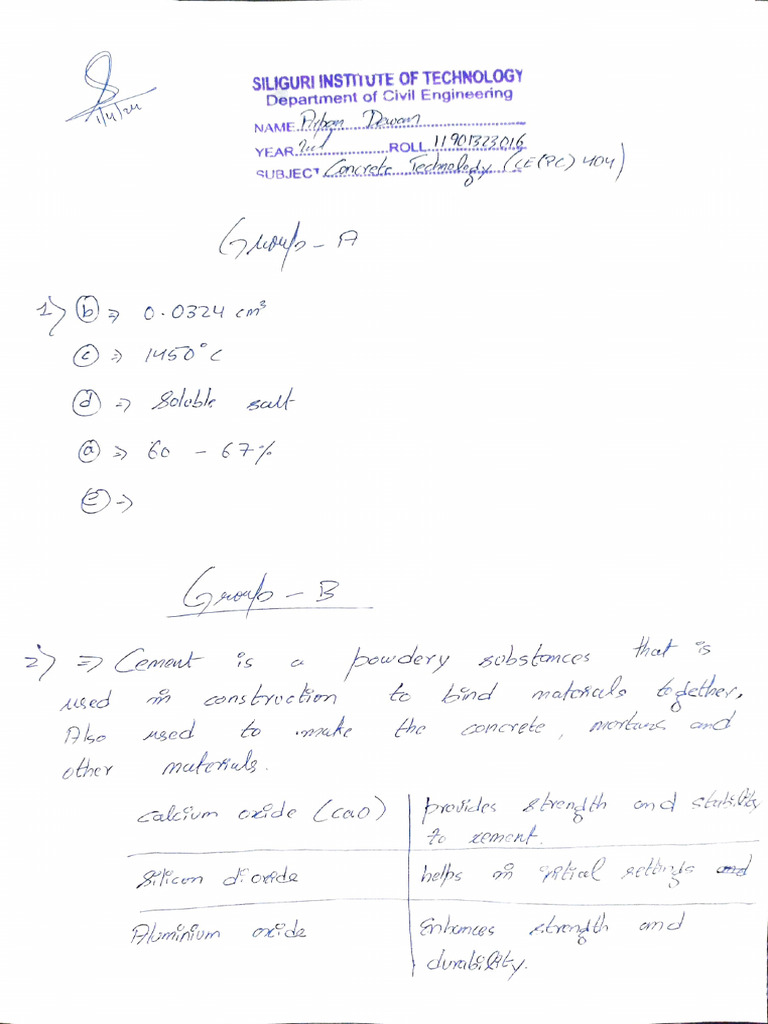 1/4/24
SILIGURI INSTITUTE OF TECHNOLOGY
Department of Civil Engineering
NAME Arpan Dewan
YEAR 2nd ROLL 11901323016
SUBJECT Concrete Technology (CE(PC) 404)
Group - A
1) (b) => 0.0324 cm³
(c) => 1450°C
(d) => Soluble salt
(a) => 60 - 67%
(e) =>
Group - B
2) => Cement is a powdery substances that is
used in construction to bind materials together.
Also used to make the concrete, mortars and
other materials.
calcium oxide (cao) | provides strength and stability
to cement.
Silicon dioxide | helps in initial settings and
Aluminium oxide | Enhances strength and
durability.